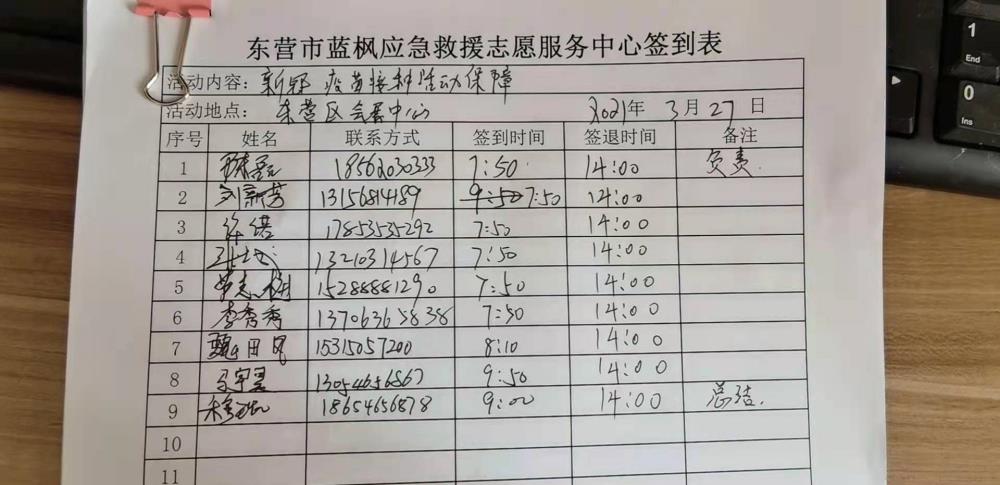 东营市蓝枫应急救援志愿服务中心签到表
活动内容：新冠疫苗接种活动保障
活动地点：东营区会展中心 2021年 3月27日
序号 姓名 联系方式 签到时间 签退时间 备注
1 18562030333 7:50 14:00 负责.
2 刘新芳 13156814189 9:50 7:50 14:00
3 许诺 17853535292 7:50 14:00
4 13210314567 7:50 14:00
5 15288881290 7:50 14:00
6 李秀秀 13706365838 7:50 14:00
7 15315057200 8:10 14:00
8 13054656867 9:50 14:00
9 18654656878 9:00 14:00 总结.
10
11
End
1
0
Ins